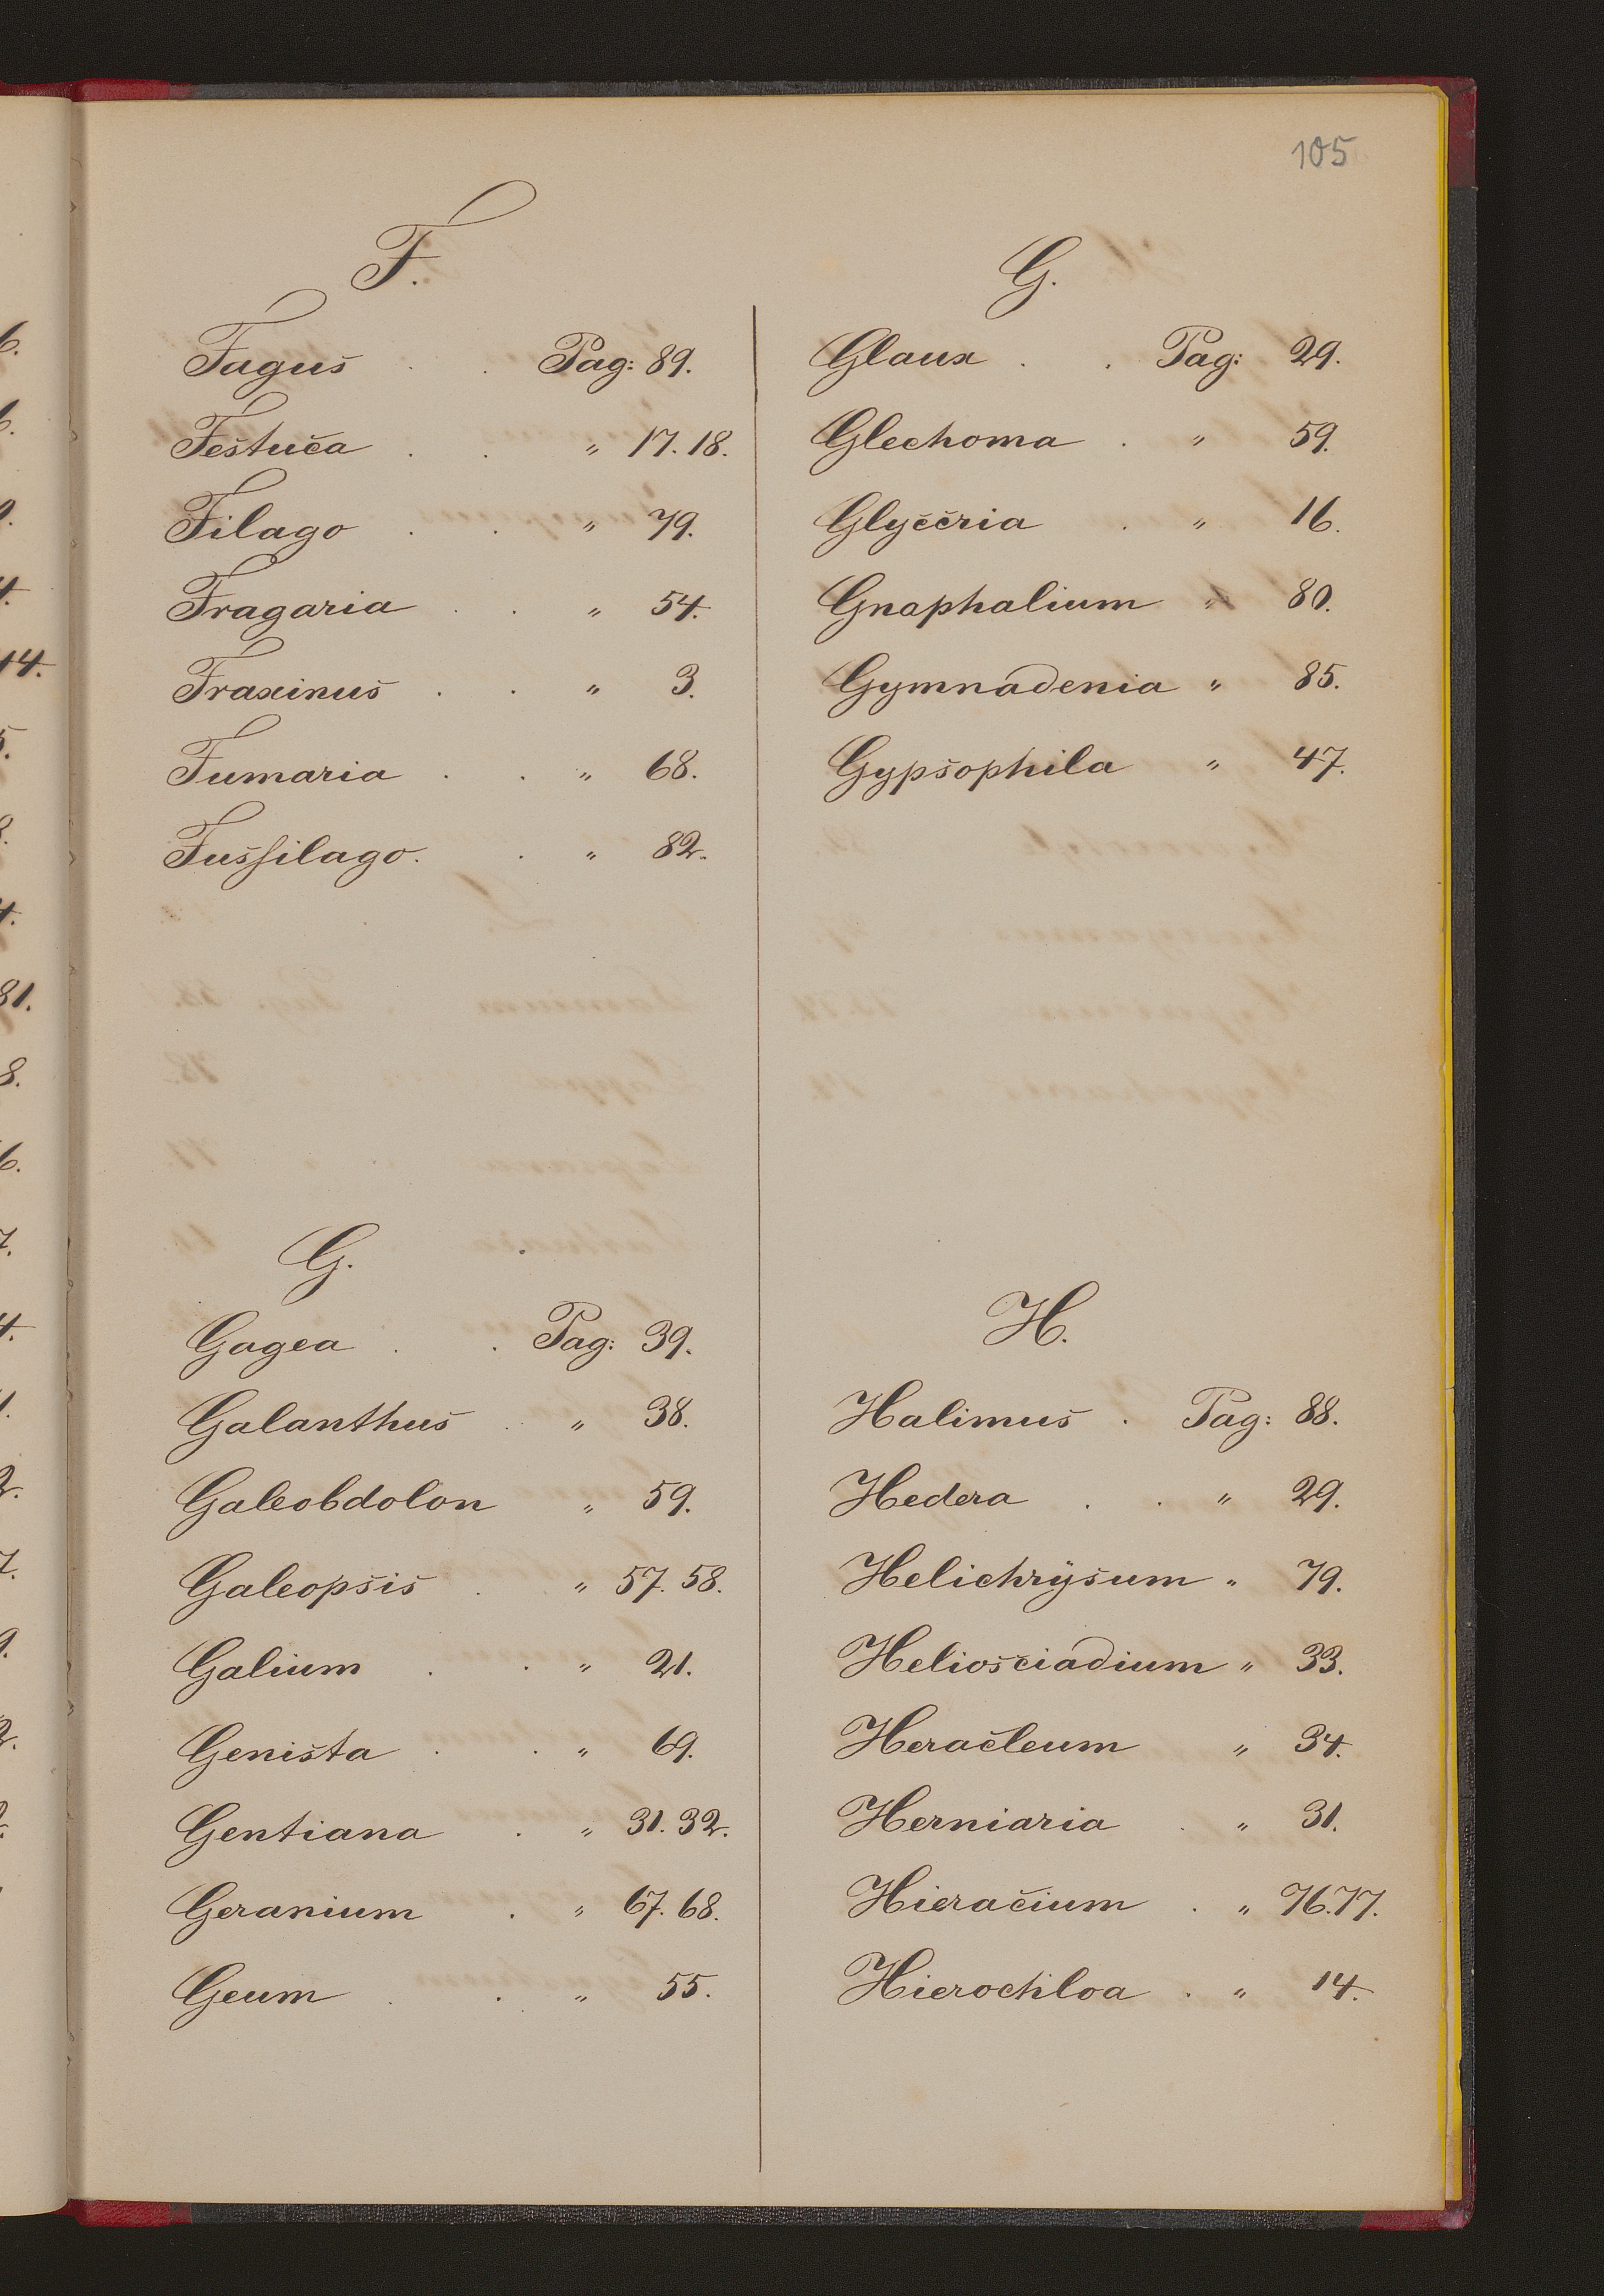 105
F.
Fagus . . Pag: 89.
Festuca . . " 17. 18.
Filago . . " 79.
Fragaria . . " 54.
Fraxinus . . " 3.
Fumaria . . " 68.
Fussilago. . " 82.
G.
Gagea . . Pag: 39.
Galanthus . " 38.
Galeobdolon " 59.
Galeopsis . " 57. 58.
Galium . . " 21.
Genista . . " 69.
Gentiana . " 31. 32.
Geranium . " 67. 68.
Geum . . " 55.
G.
Glaux . . Pag: 29.
Glechoma . " 59.
Glyceria . " 16.
Gnaphalium " 80.
Gymnadenia " 85.
Gypsophila " 47.
H.
Halimus . Pag: 88.
Hedera . . " 29.
Helichrÿsum " 79.
Heliosciadium " 33.
Heracleum " 34.
Herniaria . " 31.
Hieracium . " 76.77.
Hierochloa . " 14.